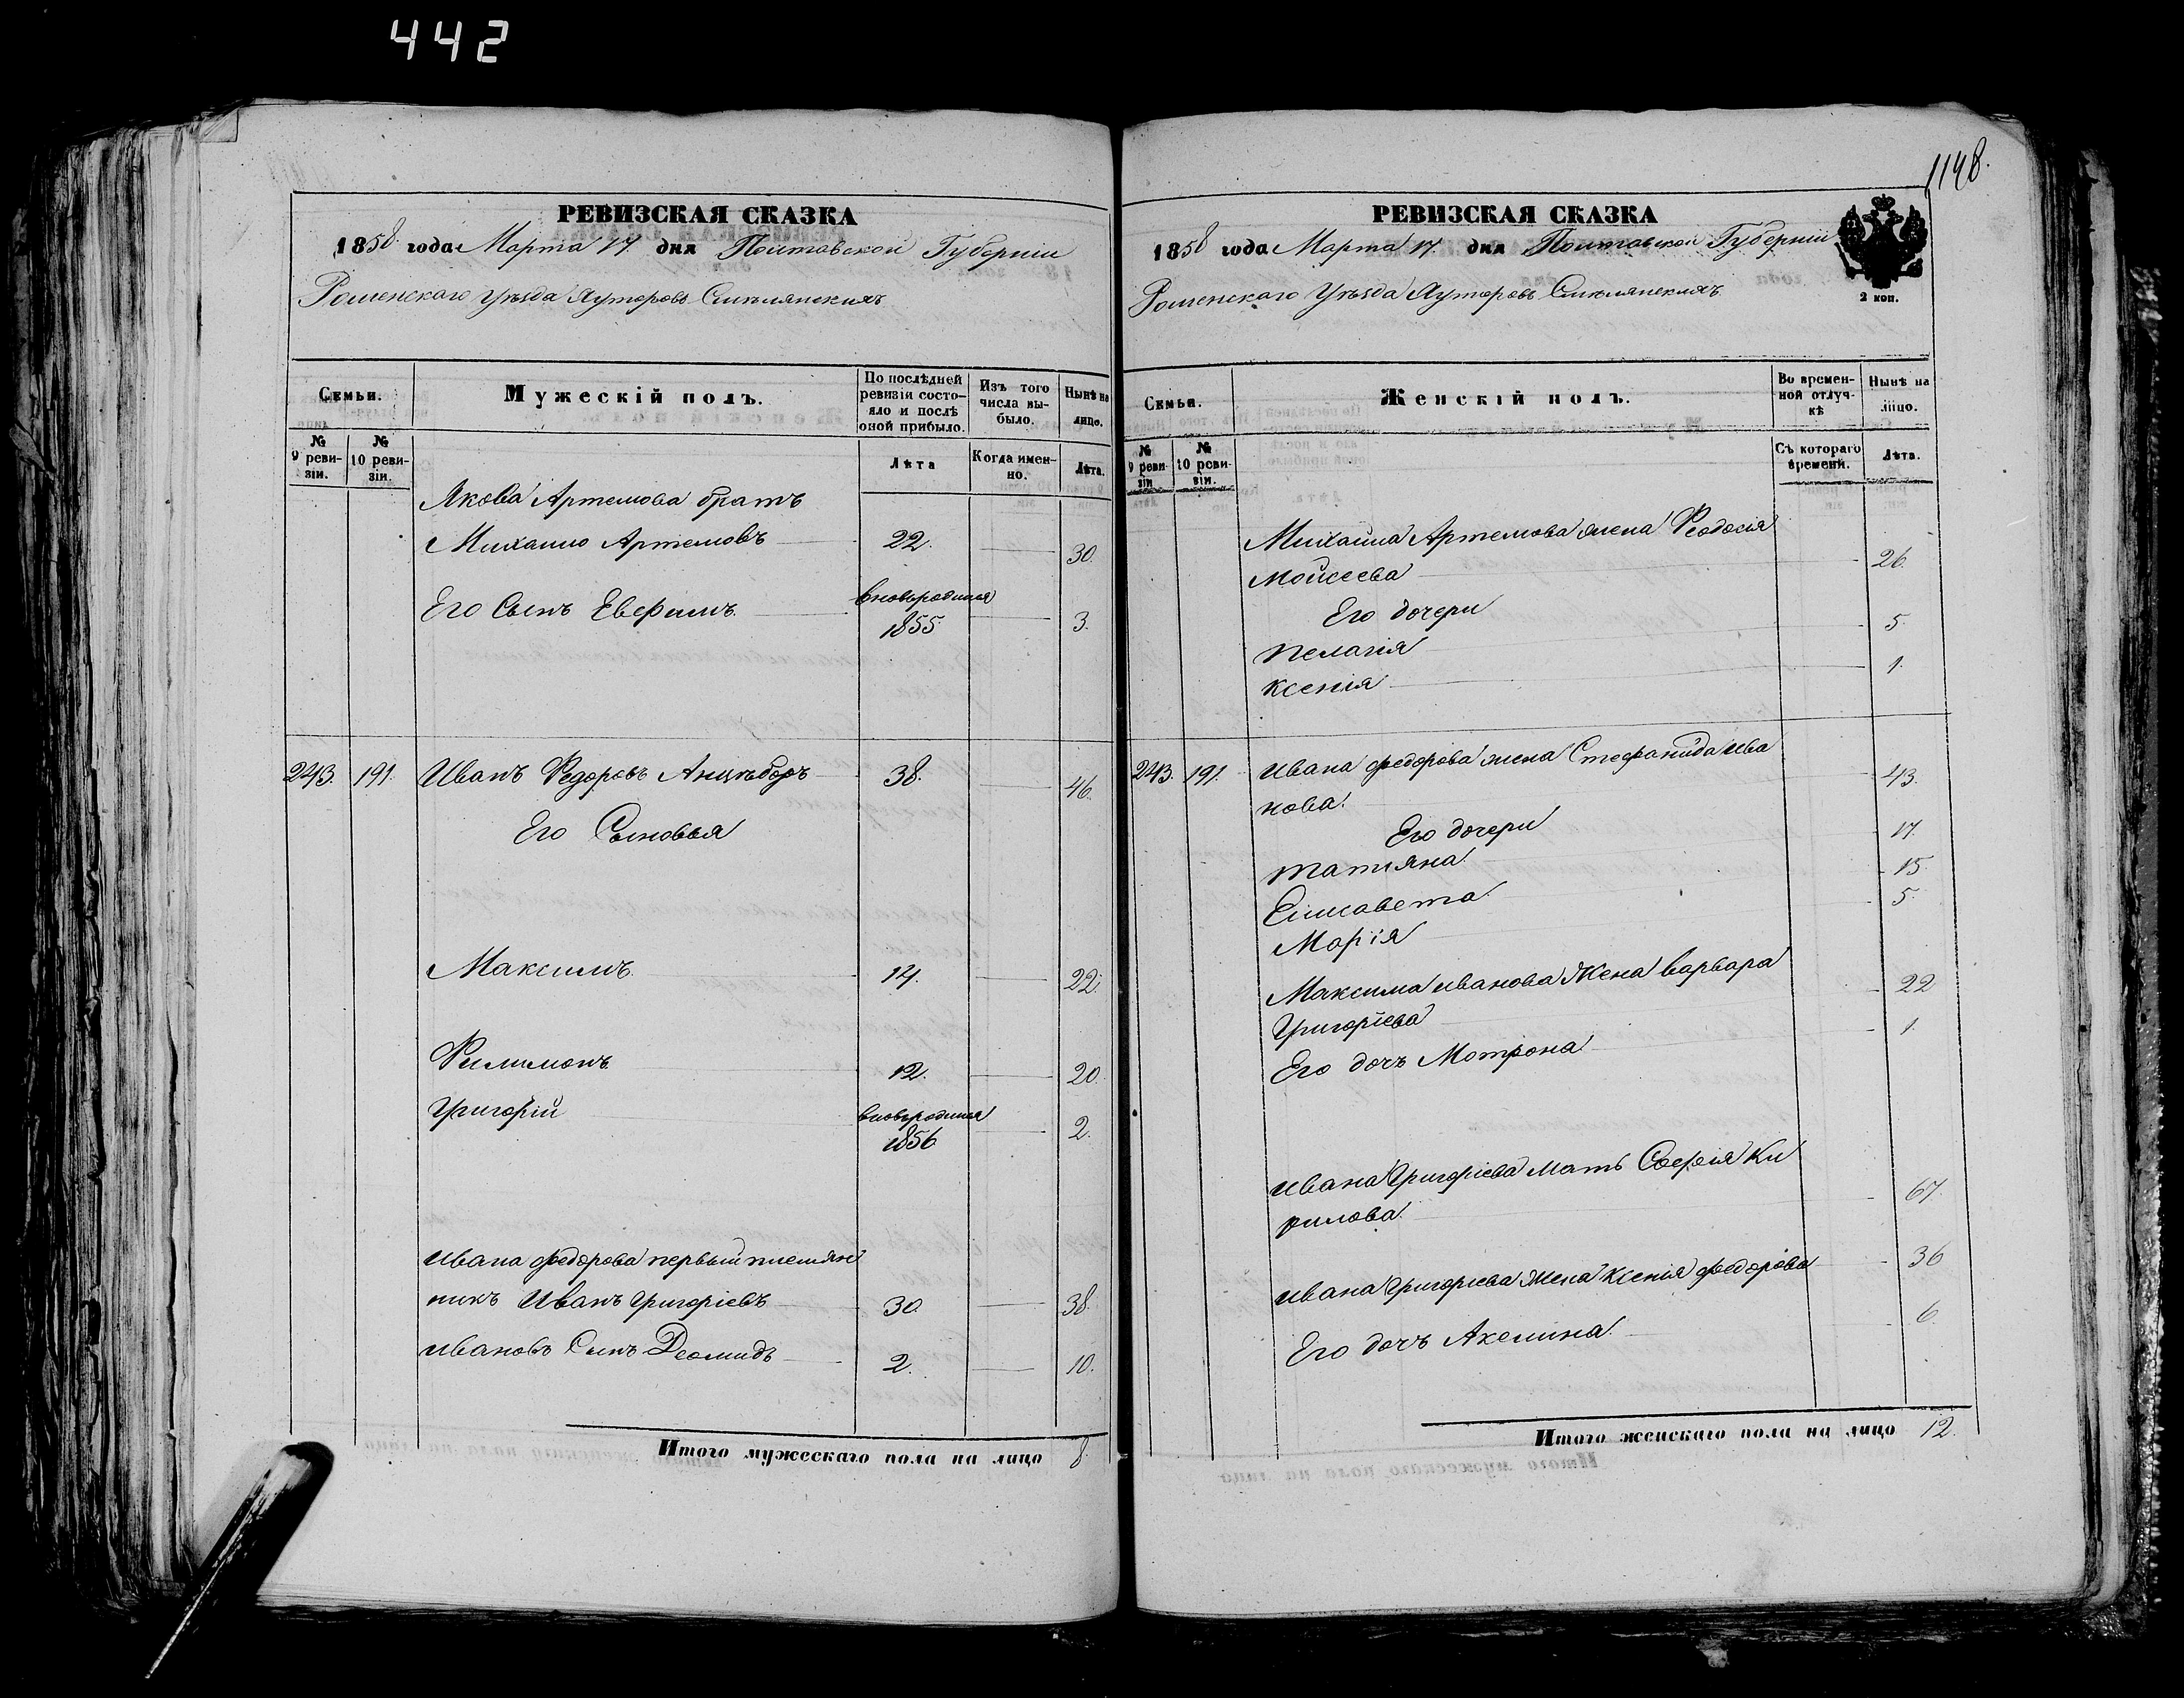 442
1148.
РЕВИЗСКАЯ СКАЗКА
1858 года Марта 17 дня Полтавской Губерніи
Роменскаго Уѣзда Хуторовъ Смѣлянскихъ
Семьи.
Мужескій полъ.
По послѣдней ревизіи состо-
яло и послѣ
оной прибыло.
Изъ того
числа вы-
было.
Нынѣ на
лицо.
№
9 реви-
зіи.
№
10 реви-
зіи.
Лѣта
Когда имен-
но.
Лѣта.
Якова Артемова братъ
Михайло Артемовъ 22. 30.
Его Сынъ Евфимъ вновьродился
1855 3.
243. 191. Иванъ Федоровъ 38. 46.
Его Сыновья
Максимъ 14. 22.
Филимонъ 12. 20.
Григорій вновьродился
1856 2.
Ивана Федорова первый племян
никъ Иванъ Григоріевъ 30. 38.
Ивановъ Сынъ Деомидъ 2. 10.
Итого мужескаго пола на лицо 8
РЕВИЗСКАЯ СКАЗКА
1858 года Марта 17. дня Полтавской Губерніи
2 коп.
Роменскаго Уѣзда Хуторовъ Смѣлянскихъ
Семьи.
Женскій полъ.
Во времен-
ной отлуч-
кѣ
Нынѣ на
лицо.
№
9 реви-
зіи
№
10 реви-
зіи.
Съ котораго
времени.
Лѣта.
Михайла Артемова жена Феодосія
Мойсеева 26.
Его дочери
Пелагія 5.
Ксенія 1.
243. 191. Ивана Федорова жена Стефанида Ива
нова. 43.
Его дочери
Татіяна 17.
Елисавета 15.
Марія 5.
Максима Иванова Жена Варвара
Григоріева 22
Его дочь Мотрона 1.
Ивана Григоріева Мать Софія Ки
рилова 67.
Ивана Григоріева Жена Ксенія Федорова 36
Его дочь Акелина 6.
Итого женскаго пола на лицо 12.